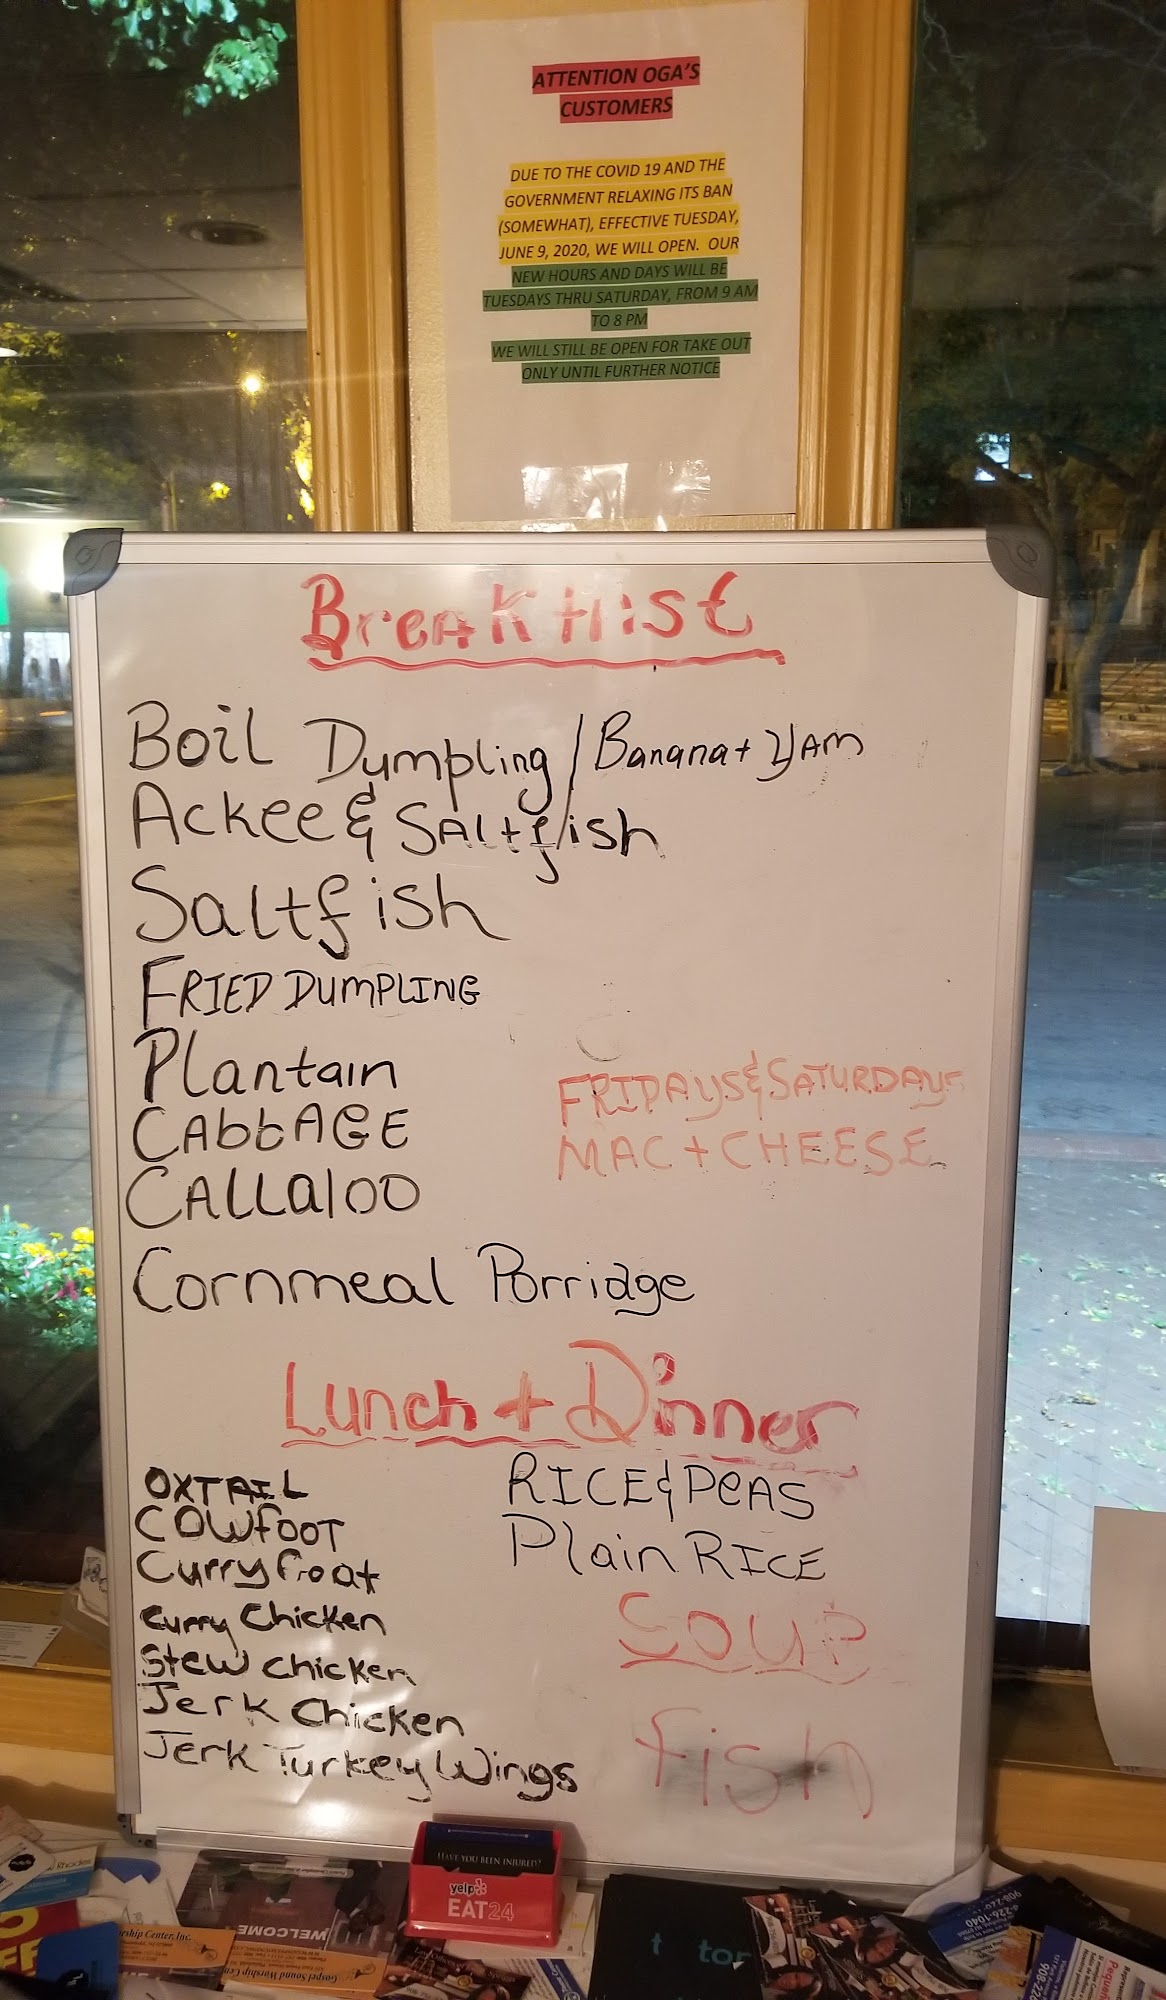 ATTENTION OGA'S
CUSTOMERS
DUE TO THE COVID 19 AND THE
GOVERNMENT RELAXING ITS BAN
(SOMEWHAT), EFFECTIVE TUESDAY,
JUNE 9, 2020, WE WILL OPEN. OUR
NEW HOURS AND DAYS WILL BE
TUESDAYS THRU SATURDAY, FROM 9 AM
TO 8 PM
WE WILL STILL BE OPEN FOR TAKE OUT
ONLY UNTIL FURTHER NOTICE
Breakfast
Boil Dumpling / Banana + YAM
Ackee & SALtfish
Saltfish
FRIED DUMPLING
Plantain
CAbbAGE
CALLaloo
FRIDAYS & SATURDAYS
MAC + CHEESE
Cornmeal Porridge
Lunch + Dinner
OXTAIL
COWfOOT
Curry Goat
Curry Chicken
Stew chicken
Jerk Chicken
Jerk Turkey Wings
RICE & PeAS
Plain RICE
Soup
fish
HAVE YOU BEEN INJURED?
yelp
EAT24
WELCOME
Gospel Sound Worship Center, Inc.
rship Center, Inc.
tor